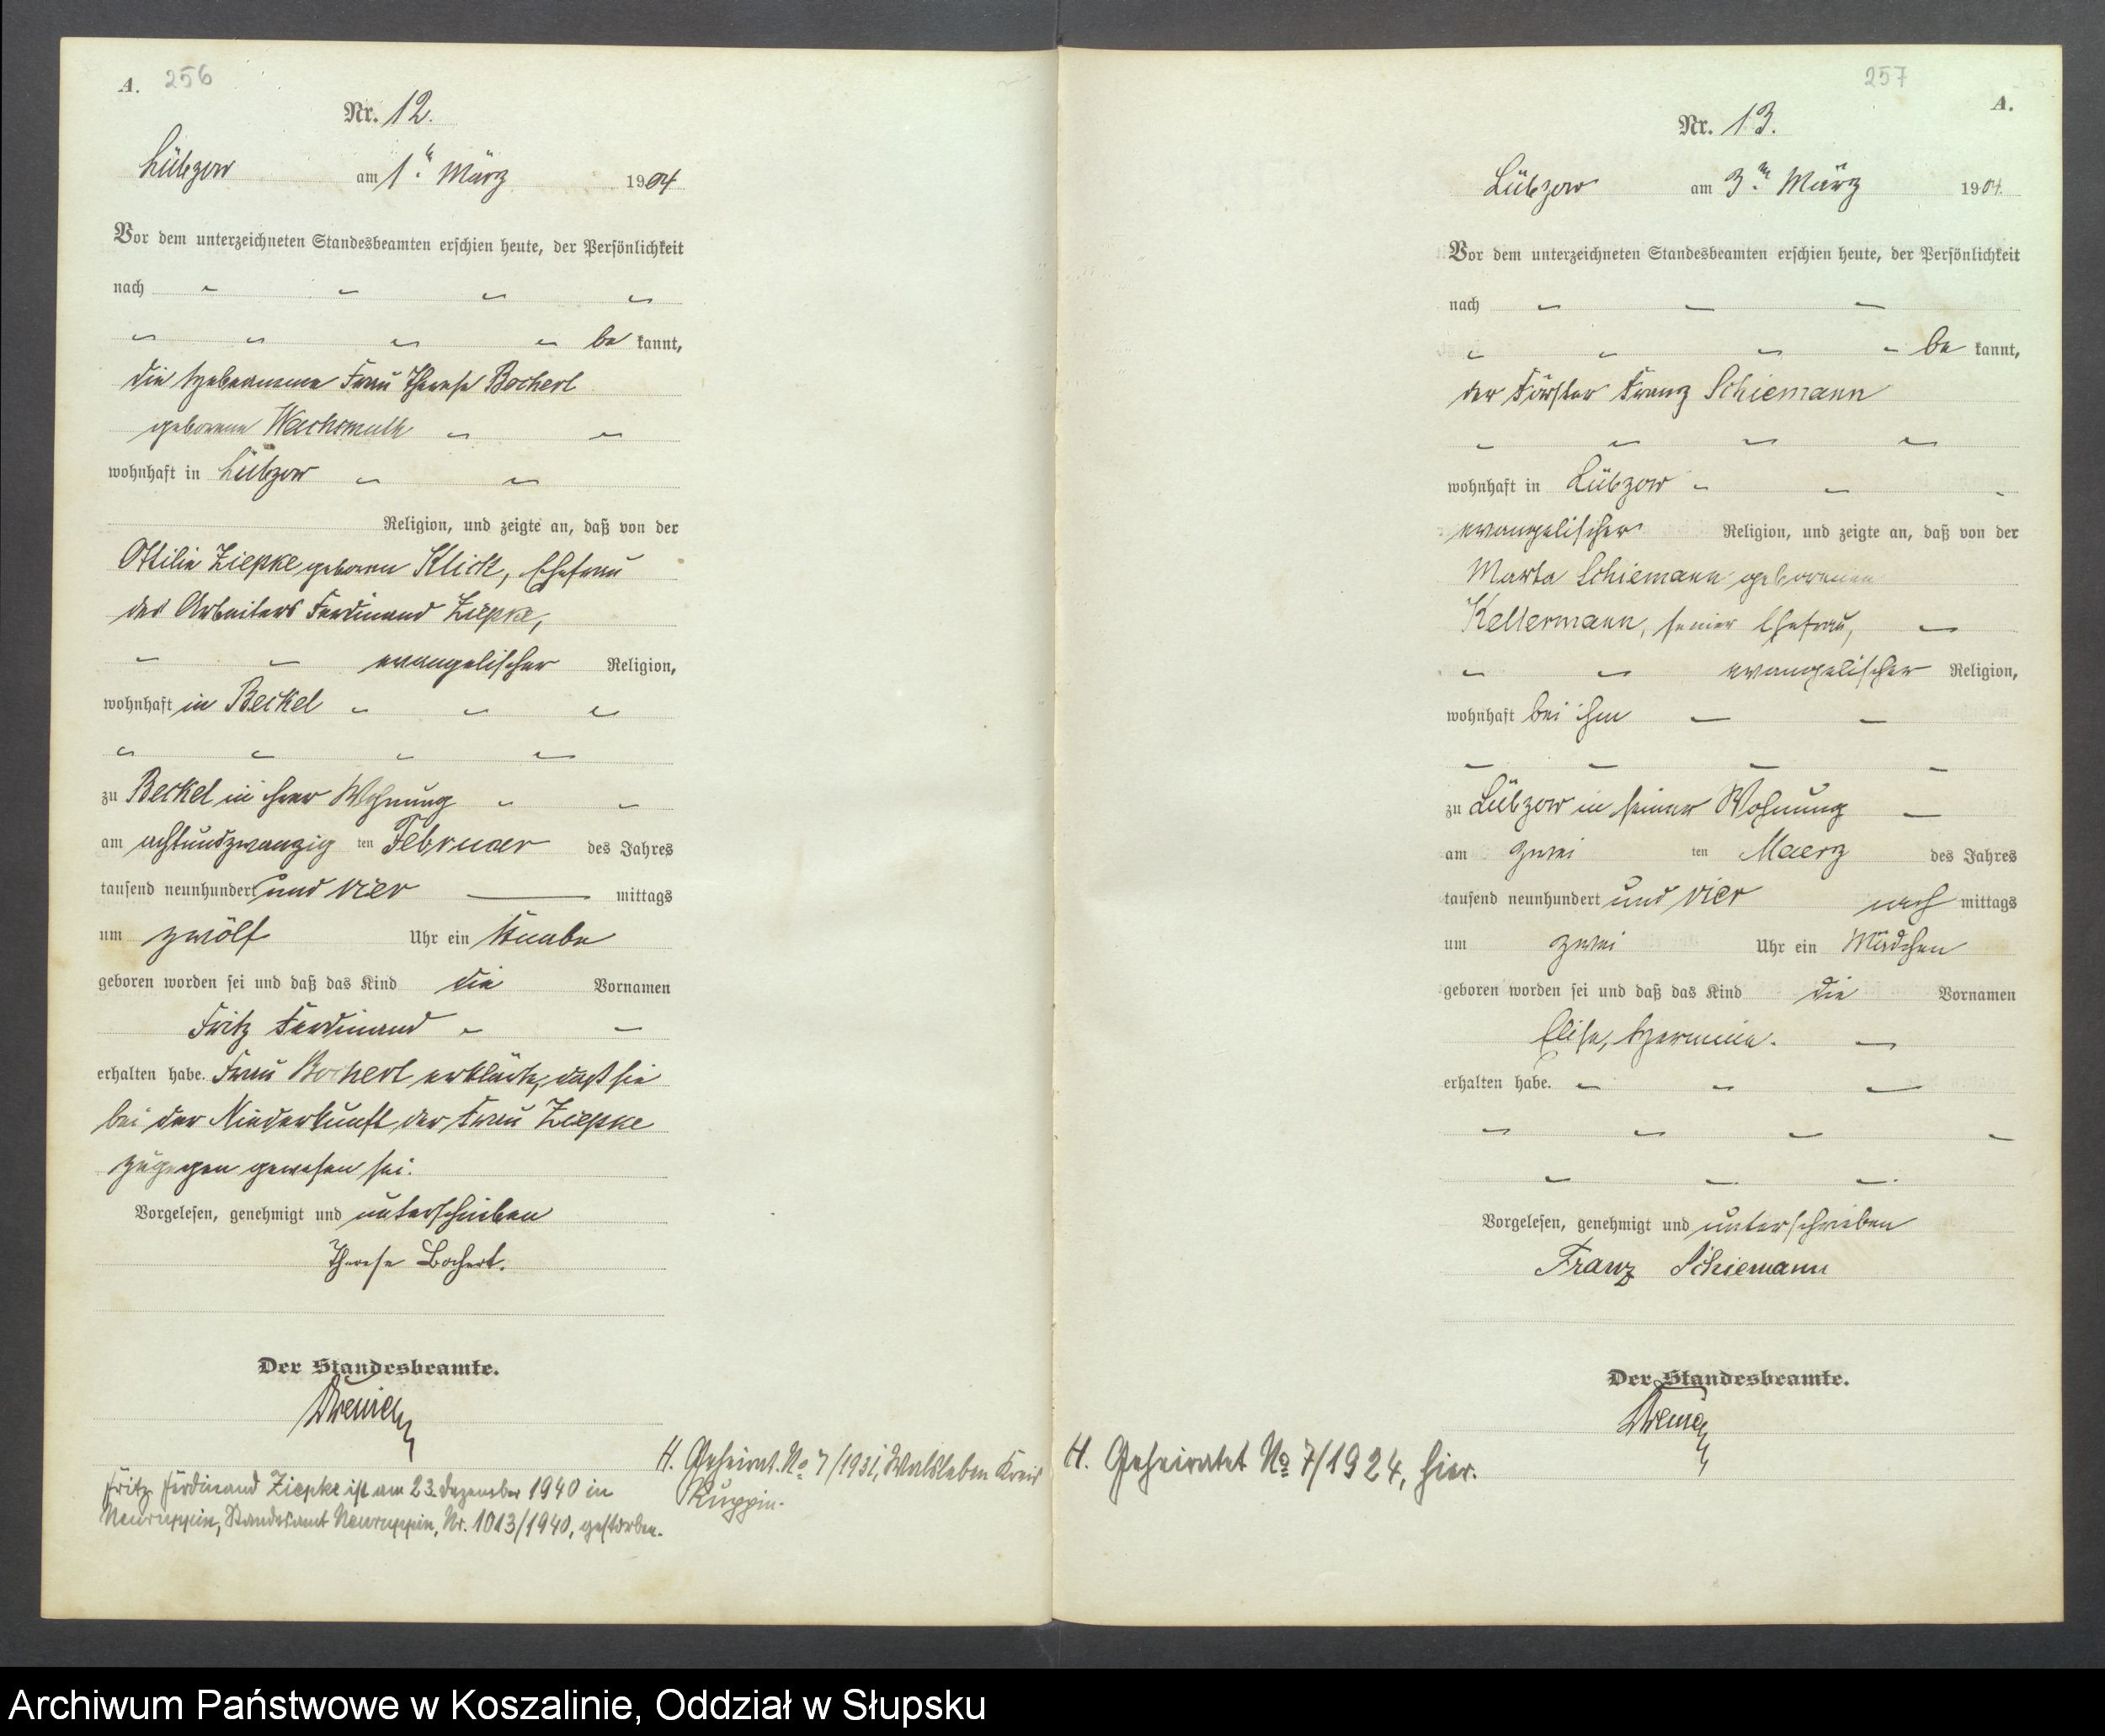 A. 256
Nr. 12.
Lübzow am 1ten März 1904
Vor dem unterzeichneten Standesbeamten erschien heute, der Persönlichkeit
nach
be kannt,
die Hebeamme Frau Therese Bochert
geborene Wachsmuth
wohnhaft in Lübzow
Religion, und zeigte an, daß von der
Ottilie Ziepke geboren Klick, Ehefrau
des Arbeiters Ferdinand Ziepke,
evangelischer Religion,
wohnhaft in Beckel
zu Beckel in ihrer Wohnung
am achtundzwanzig ten Februar des Jahres
tausend neunhundert und vier mittags
um zwölf Uhr ein Knabe
geboren worden sei und daß das Kind die Vornamen
Fritz Ferdinand
erhalten habe. Frau Bochert erklärte, daß sie
bei der Niederkunft der Frau Ziepke
zugegen gewesen sei.
Vorgelesen, genehmigt und unterschrieben
Therese Bochert.
Der Standesbeamte.
H. Geheirat. No 7/1931, Walsleben Kreis
Ruppin.
Fritz Ferdinand Ziepke ist am 23. Dezember 1940 in
Neuruppin, Standesamt Neuruppin, Nr. 1013/1940, gestorben.
257
A.
Nr. 13.
Lübzow am 3ten März 1904.
Vor dem unterzeichneten Standesbeamten erschien heute, der Persönlichkeit
nach
be kannt,
der Förster Franz Schiemann
wohnhaft in Lübzow
evangelischer Religion, und zeigte an, daß von der
Marta Schiemann geborenen
Kellermann, seiner Ehefrau,
evangelischer Religion,
wohnhaft bei ihm
zu Lübzow in seiner Wohnung
am zwei ten Maerz des Jahres
tausend neunhundert und vier nach mittags
um zwei Uhr ein Mädchen
geboren worden sei und daß das Kind die Vornamen
Elise, Hermine.
erhalten habe.
Vorgelesen, genehmigt und unterschrieben
Franz Schiemann
Der Standesbeamte.
H. Geheiratet No 7/1924, hier.
Archiwum Państwowe w Koszalinie, Oddział w Słupsku